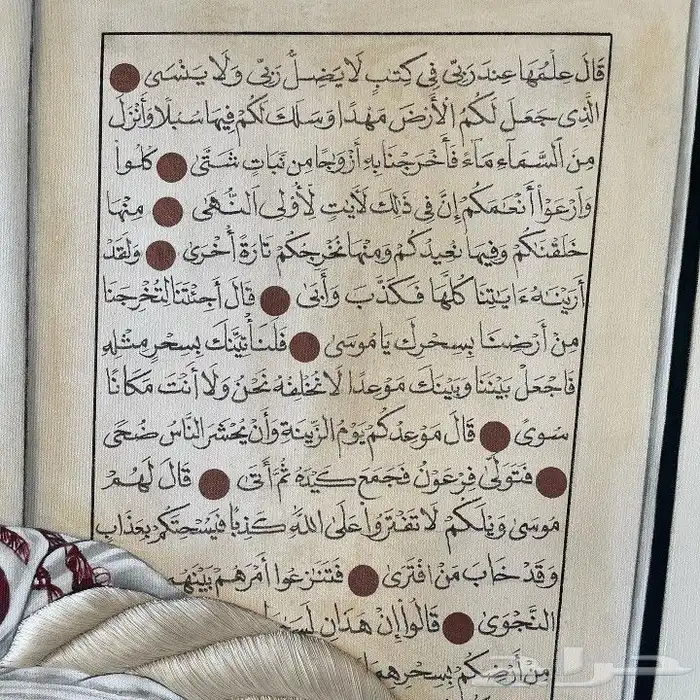 قَالَ عِلْمُهَا عِندَ رَبِّى فِى كِتٰبٍ لَا يَضِلُّ رَبِّى وَلَا يَنْسَى
الَّذِى جَعَلَ لَكُمُ الْأَرْضَ مَهْدًا وَسَلَكَ لَكُمْ فِيهَا سُبُلًا وَأَنْزَلَ
مِنَ السَّمَاءِ مَاءً فَأَخْرَجْنَا بِهِ أَزْوٰجًا مِن نَبَاتٍ شَتَّىٰ كُلُوا
وَارْعَوْا أَنْعٰمَكُمْ إِنَّ فِى ذٰلِكَ لَآيٰتٍ لِأُولِى النُّهَىٰ مِنْهَا
خَلَقْنٰكُمْ وَفِيهَا نُعِيدُكُمْ وَمِنْهَا نُخْرِجُكُمْ تَارَةً أُخْرَىٰ وَلَقَدْ
أَرَيْنٰهُ ءَايٰتِنَا كُلَّهَا فَكَذَّبَ وَأَبَىٰ قَالَ أَجِئْتَنَا لِتُخْرِجَنَا
مِنْ أَرْضِنَا بِسِحْرِكَ يَا مُوسَىٰ فَلَنَأْتِيَنَّكَ بِسِحْرٍ مِثْلِهِ
فَاجْعَلْ بَيْنَنَا وَبَيْنَكَ مَوْعِدًا لَا نُخْلِفُهُ نَحْنُ وَلَا أَنْتَ مَكَانًا
سُوىً قَالَ مَوْعِدُكُمْ يَوْمُ الزِّينَةِ وَأَنْ يُحْشَرَ النَّاسُ ضُحًى
فَتَوَلَّىٰ فِرْعَوْنُ فَجَمَعَ كَيْدَهُ ثُمَّ أَتَىٰ قَالَ لَهُمْ
مُوسَىٰ وَيْلَكُمْ لَا تَفْتَرُوا عَلَى اللَّهِ كَذِبًا فَيُسْحِتَكُمْ بِعَذَابٍ
وَقَدْ خَابَ مَنْ افْتَرَىٰ فَتَنٰزَعُوا أَمْرَهُمْ بَيْنَهُ
النَّجْوَىٰ قَالُوا إِنْ هَذَانِ
مِنْ أَرْضِكُمْ بِسِحْرِهِمَا
حراج